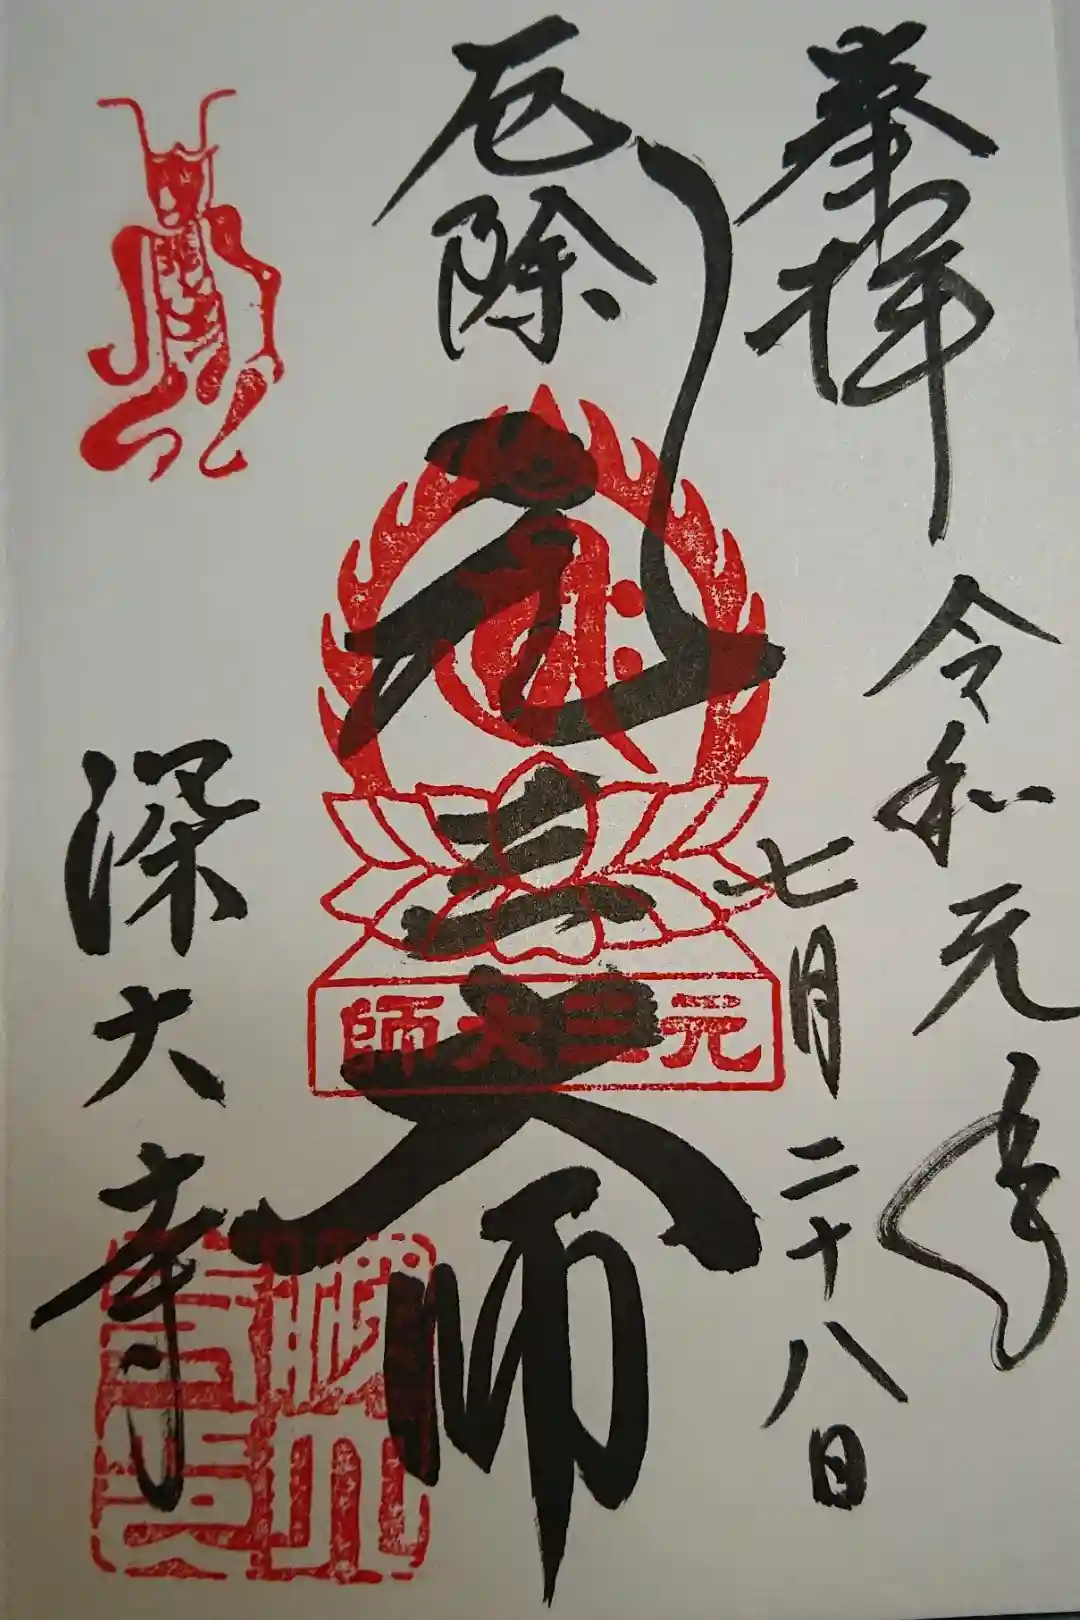 奉拝
令和元年
七月二十八日
厄除
元三大師
元三大師
深大寺